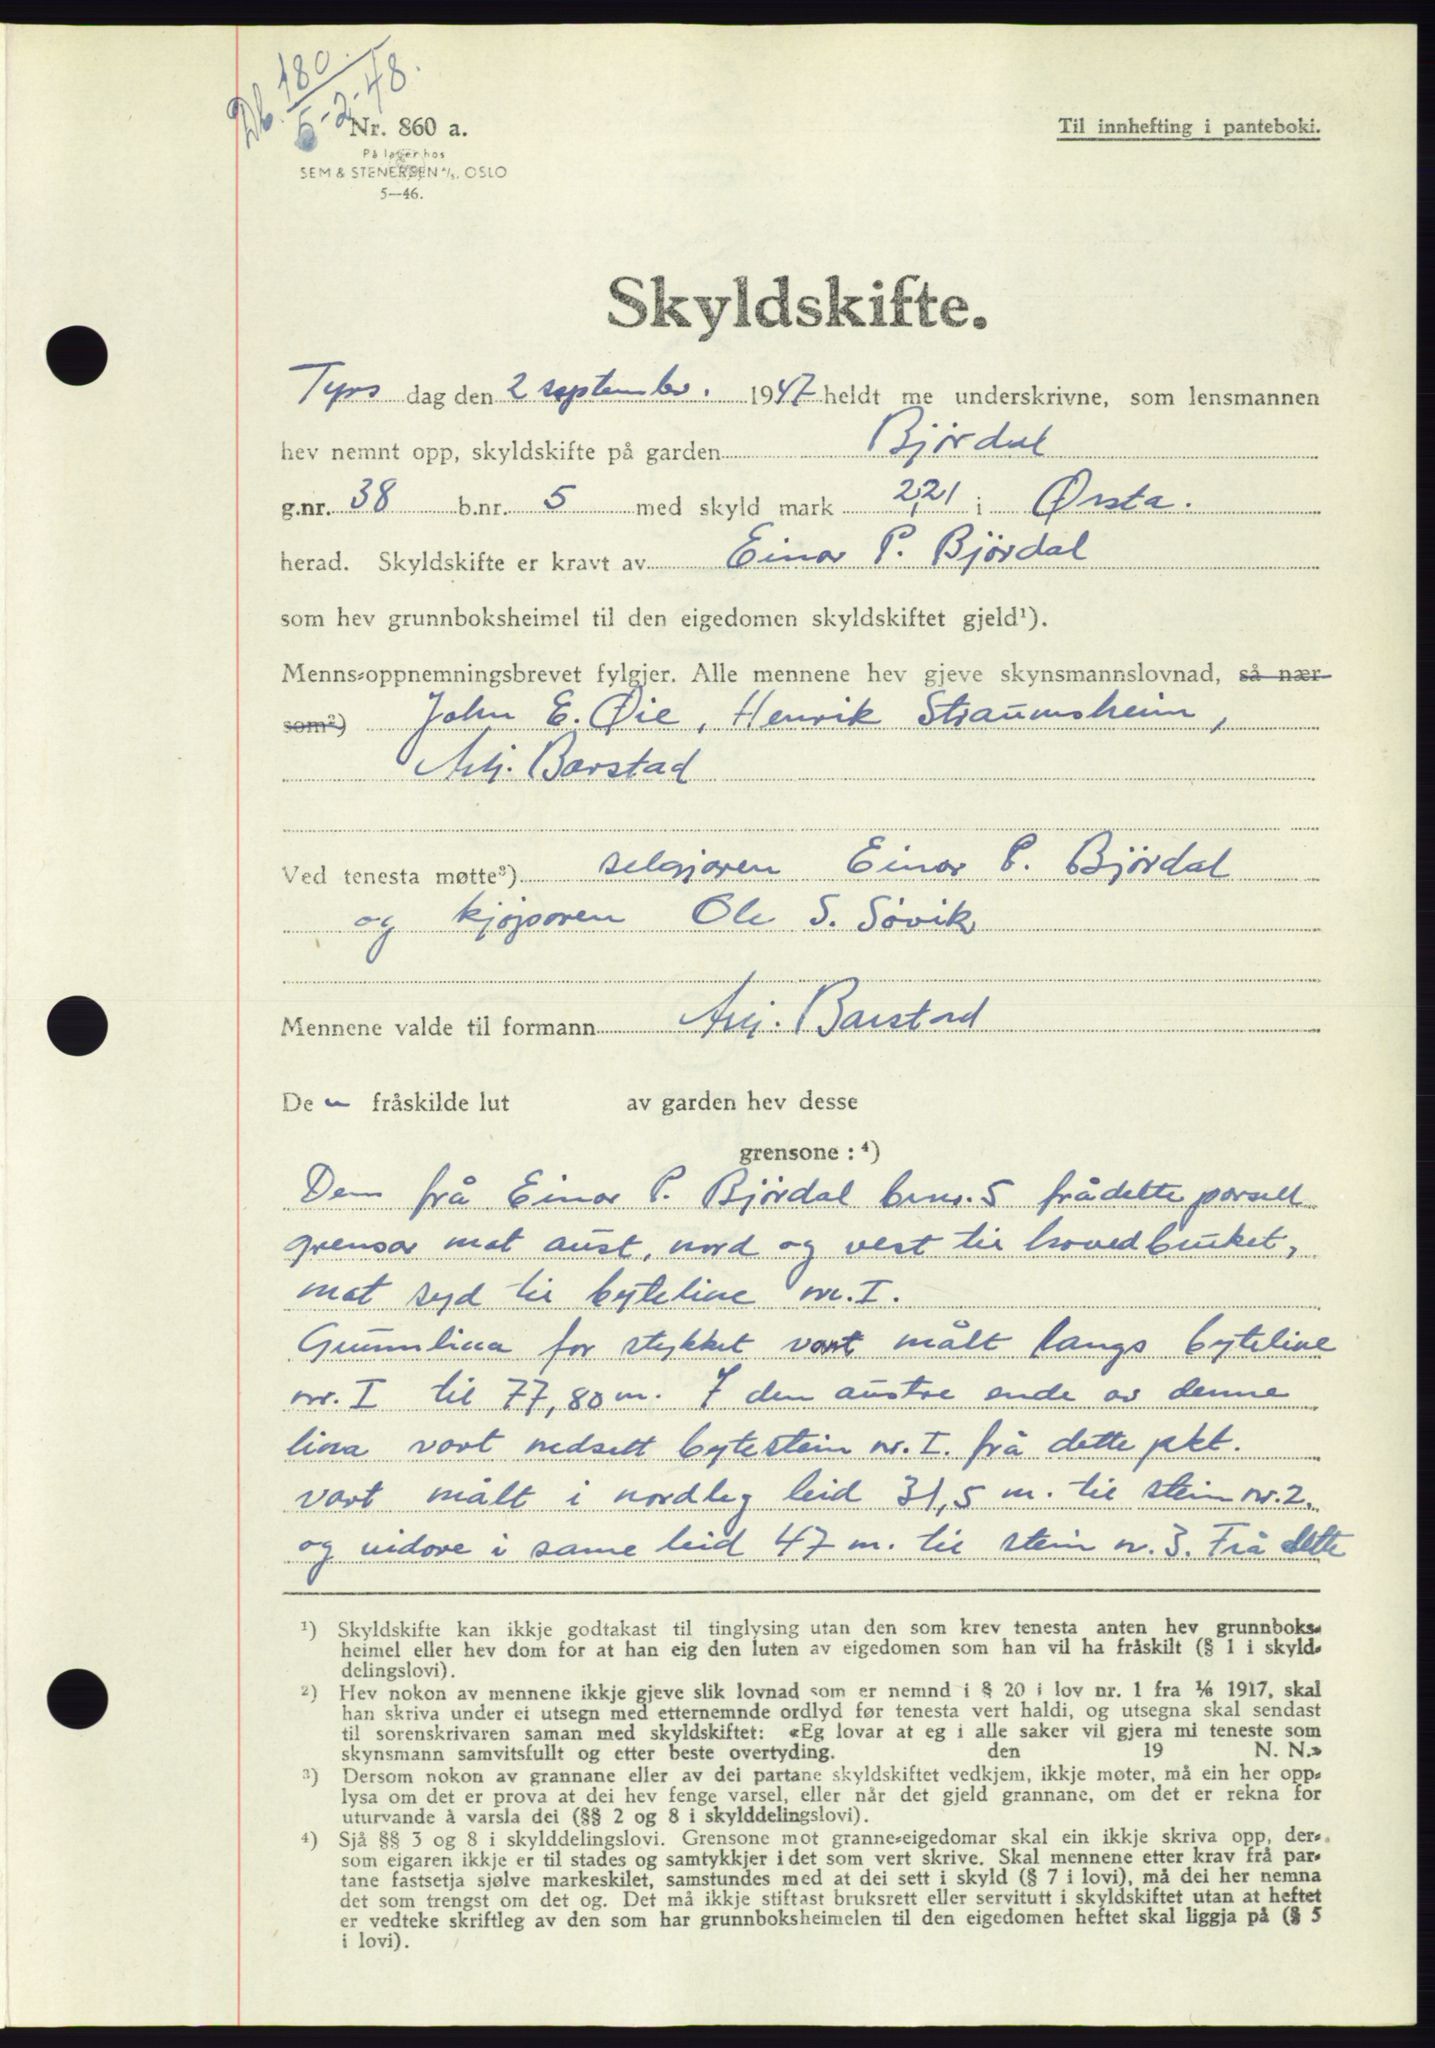 Db. 180
5-2-48.
Nr. 860 a.
Til innhefting i panteboki.
På lager hos
SEM & STENERSEN A/S, OSLO
5—46.
Skyldskifte.
Tyrs dag den 2 september. 1947 heldt me underskrivne, som lensmannen
hev nemnt opp, skyldskifte på garden Bjørdal
g.nr. 38 b.nr. 5 med skyld mark 2,21 i Ørsta.
herad. Skyldskifte er kravt av Einar P. Bjørdal
som hev grunnboksheimel til den eigedomen skyldskiftet gjeld¹).
Menns-oppnemningsbrevet fylgjer. Alle mennene hev gjeve skynsmannslovnad, så nær
som²) John E. Øie, Henrik Straumsheim,
Barstad
Ved tenesta møtte³) selgjaren Einar P. Bjørdal
og kjøparen Ole S. Søvik
Mennene valde til formann Barstad
De n fråskilde lut av garden hev desse
grensone : ⁴)
Den frå Einar P. Bjørdal brnr. 5 frådelte parsell
grensar mot aust, nord og vest til hovedbruket,
mot syd til byteline nr. I.
Grunnlina for stykket vart målt langs byteline
nr. I til 77,80 m. I den austre ende av denne
lina vart nedsett bytestein nr. I. frå dette pkt.
vart målt i nordleg leid 31,5 m. til stein nr. 2.
og vidare i same leid 47 m. til stein nr. 3. Frå dette
¹) Skyldskifte kan ikkje godtakast til tinglysing utan den som krev tenesta anten hev grunnboks-
heimel eller hev dom for at han eig den luten av eigedomen som han vil ha fråskilt (§ 1 i skyld-
delingslovi).
²) Hev nokon av mennene ikkje gjeve slik lovnad som er nemnd i § 20 i lov nr. 1 fra 1/6 1917, skal
han skriva under ei utsegn med etternemnde ordlyd før tenesta vert haldi, og utsegna skal sendast
til sorenskrivaren saman med skyldskiftet: «Eg lovar at eg i alle saker vil gjera mi teneste som
skynsmann samvitsfullt og etter beste overtyding. den 19 N. N.»
³) Dersom nokon av grannane eller av dei partane skyldskiftet vedkjem, ikkje møter, må ein her opp-
lysa om det er prova at dei hev fenge varsel, eller når det gjeld grannane, om det er rekna for
uturvande å varsla dei (§§ 2 og 8 i skylddelingslovi).
⁴) Sjå §§ 3 og 8 i skylddelingslovi. Grensone mot granne-eigedomar skal ein ikkje skriva opp, der-
som eigaren ikkje er til stades og samtykkjer i det som vert skrive. Skal mennene etter krav frå par-
tane fastsetja sjølve markeskilet, samstundes med at dei sett i skyld (§ 7 i lovi), må dei her nemna
det som trengst om det og. Det må ikkje stiftast bruksrett eller servitutt i skyldskiftet utan at heftet
er vedteke skriftleg av den som har grunnboksheimelen til den eigedomen heftet skal liggja på (§ 5
i lovi).